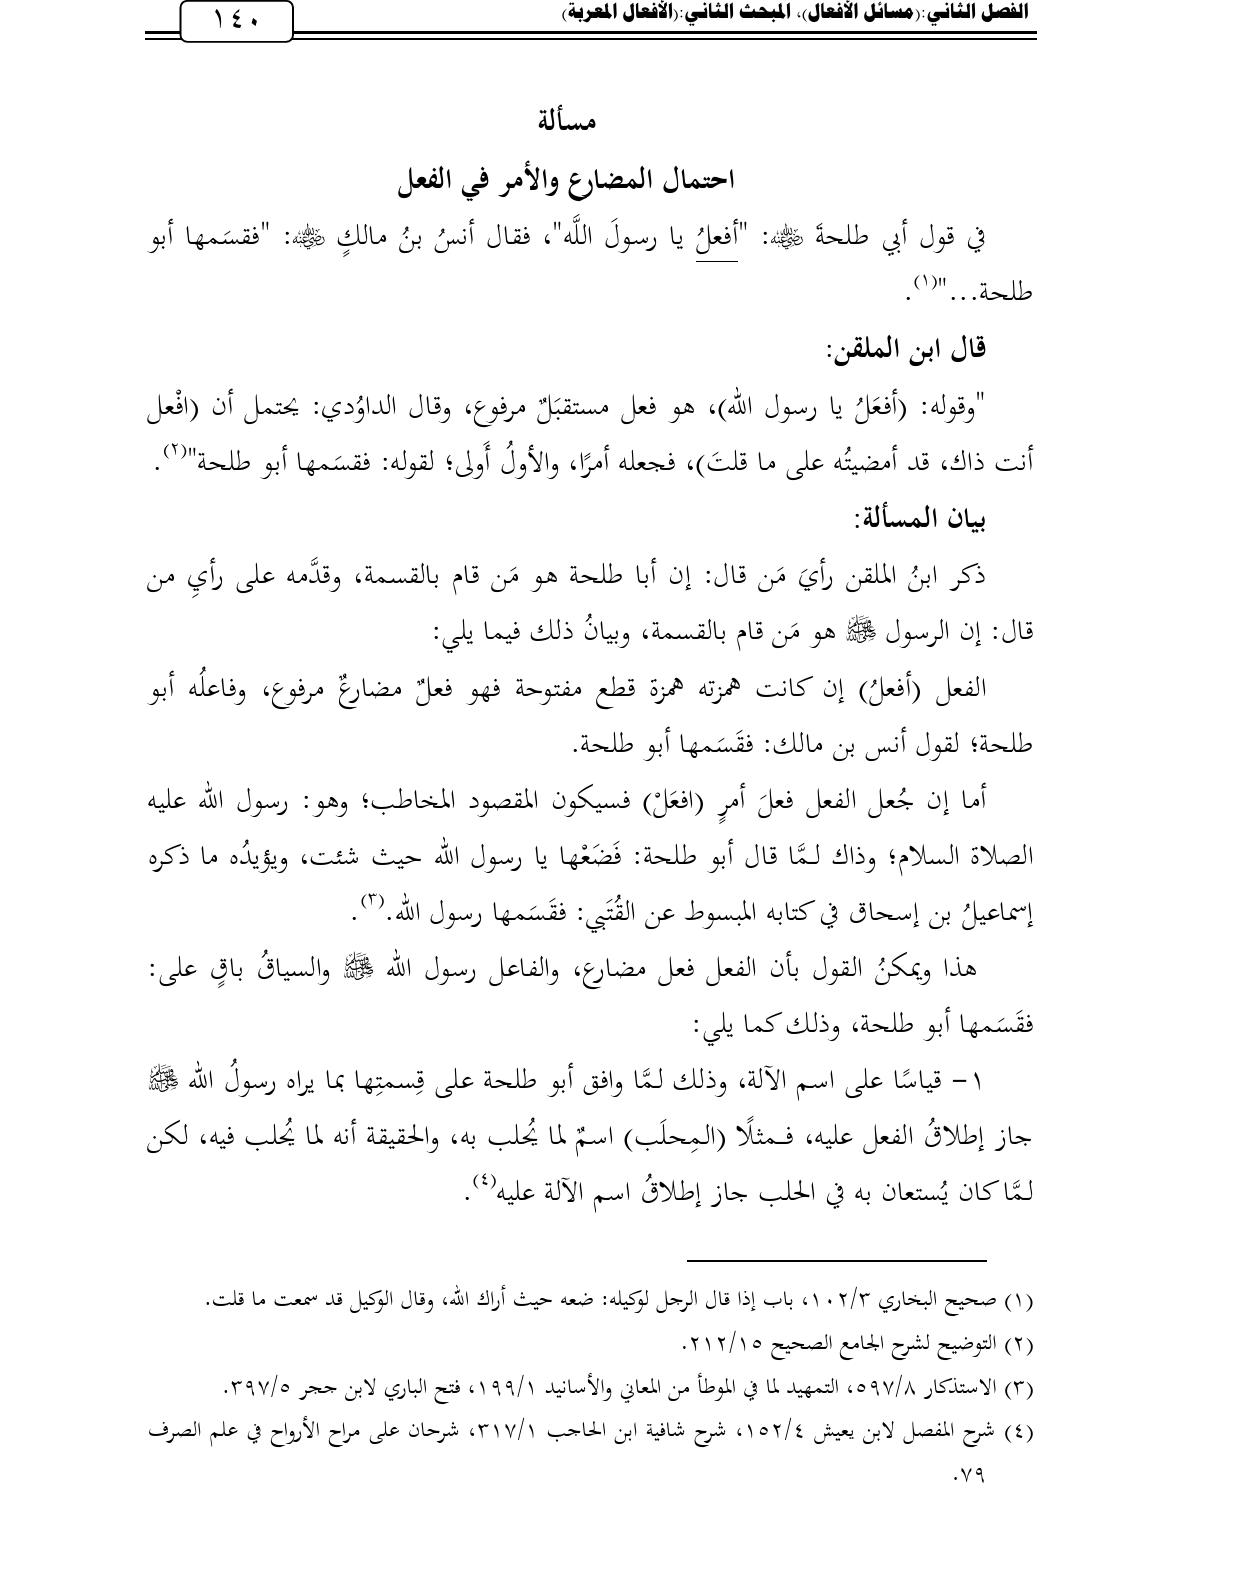 الفصل الثاني:(مسائل الأفعال)، المبحث الثاني:(الأفعال المعربة)
١٤٠
مسألة
احتمال المضارع والأمر في الفعل
في قول أبي طلحةَ ﵁: "أفعلُ يا رسولَ اللَّه"، فقال أنسُ بنُ مالكٍ ﵁: "فقسَمها أبو
طلحة..."(١).
قال ابن الملقن:
"وقوله: (أفعَلُ يا رسول الله)، هو فعل مستقبَلٌ مرفوع، وقال الداوُدي: يحتمل أن (افْعل
أنت ذاك، قد أمضيتُه على ما قلتَ)، فجعله أمرًا، والأولُ أَولى؛ لقوله: فقسَمها أبو طلحة"(٢).
بيان المسألة:
ذكر ابنُ الملقن رأيَ مَن قال: إن أبا طلحة هو مَن قام بالقسمة، وقدَّمه على رأيِ من
قال: إن الرسول ﷺ هو مَن قام بالقسمة، وبيانُ ذلك فيما يلي:
الفعل (أفعلُ) إن كانت همزته همزة قطع مفتوحة فهو فعلٌ مضارعٌ مرفوع، وفاعلُه أبو
طلحة؛ لقول أنس بن مالك: فقَسَمها أبو طلحة.
أما إن جُعل الفعل فعلَ أمرٍ (افعَلْ) فسيكون المقصود المخاطب؛ وهو: رسول الله عليه
الصلاة السلام؛ وذاك لـمَّا قال أبو طلحة: فَضَعْها يا رسول الله حيث شئت، ويؤيدُه ما ذكره
إسماعيلُ بن إسحاق في كتابه المبسوط عن القُتَبي: فقَسَمها رسول الله.(٣).
هذا ويمكنُ القول بأن الفعل فعل مضارع، والفاعل رسول الله ﷺ والسياقُ باقٍ على:
فقَسَمها أبو طلحة، وذلك كما يلي:
١- قياسًا على اسم الآلة، وذلك لـمَّا وافق أبو طلحة على قِسمتِها بما يراه رسولُ الله ﷺ
جاز إطلاقُ الفعل عليه، فـمثلًا (المِحلَب) اسمٌ لما يُحلب به، والحقيقة أنه لما يُحلب فيه، لكن
لـمَّا كان يُستعان به في الحلب جاز إطلاقُ اسم الآلة عليه(٤).
(١) صحيح البخاري ١٠٢/٣، باب إذا قال الرجل لوكيله: ضعه حيث أراك الله، وقال الوكيل قد سمعت ما قلت.
(٢) التوضيح لشرح الجامع الصحيح ٢١٢/١٥.
(٣) الاستذكار ٥٩٧/٨، التمهيد لما في الموطأ من المعاني والأسانيد ١٩٩/١، فتح الباري لابن حجر ٣٩٧/٥.
(٤) شرح المفصل لابن يعيش ١٥٢/٤، شرح شافية ابن الحاجب ٣١٧/١، شرحان على مراح الأرواح في علم الصرف
٧٩.